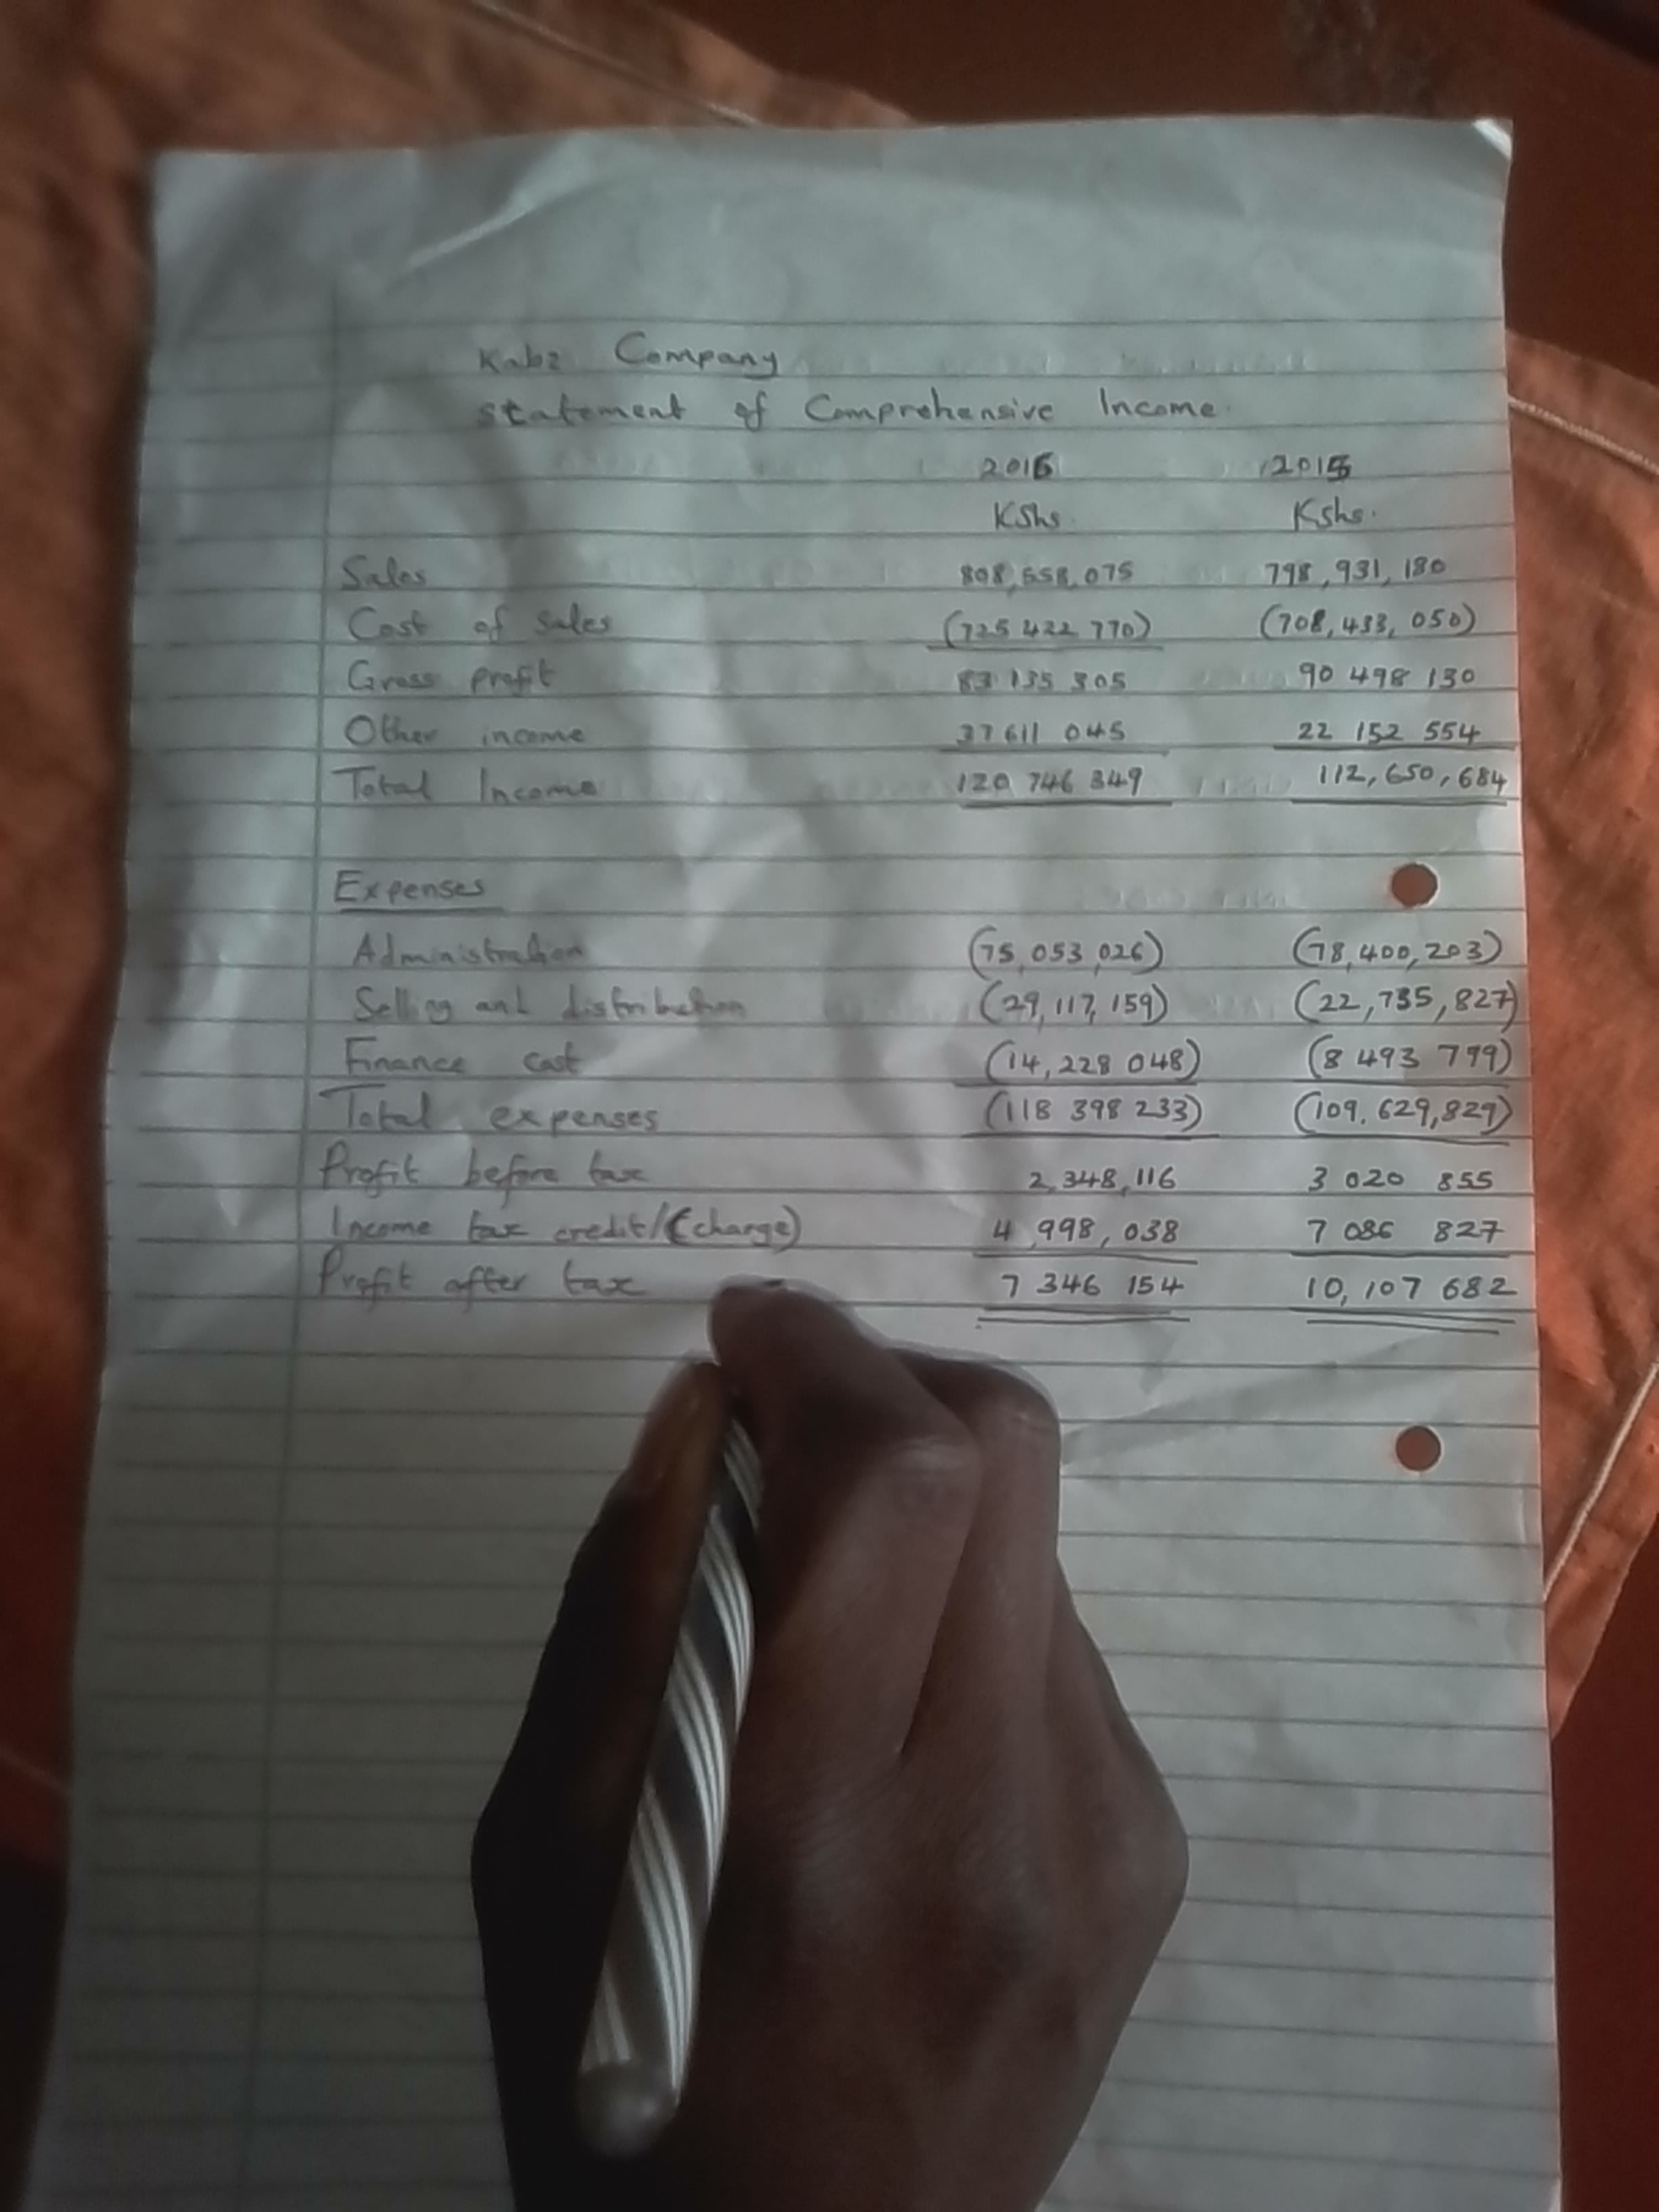 Kabz Company
Statement of Comprehensive Income.
2016 2015
KShs. Kshs.
Sales 808,558,075 798,931,180
Cost of sales (725 422 770) (708,433,050)
Gross profit 83 135 305 90 498 130
Other income 37 611 045 22 152 554
Total Income 120 746 349 112,650,684
Expenses
Administration (75,053,026) (78,400,203)
Selling and distribution (29,117,159) (22,735,827)
Finance cost (14,228 048) (8 493 799)
Total expenses (118 398 233) (109.629,829)
Profit before tax 2,348,116 3 020 855
Income tax credit/(charge) 4,998,038 7 086 827
Profit after tax 7 346 154 10,107 682